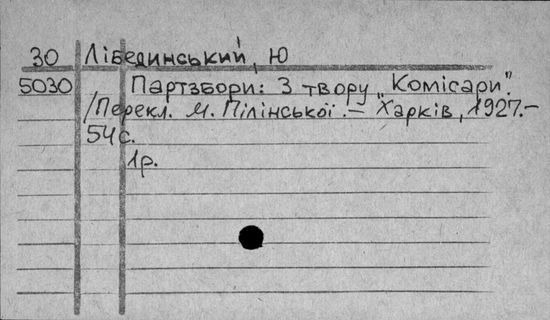 30 Лібединський, Ю
5030 Партзбори: З твору „Комісари".
/Перекл. М. Пілінської. — Харків, 1927.—
54 с.
1р.